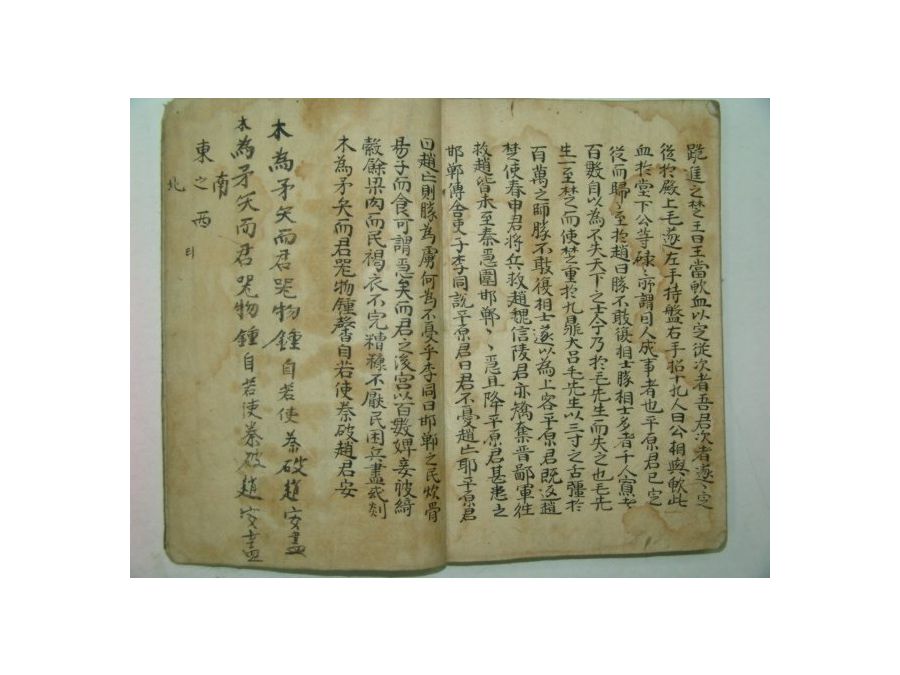 跪進之楚王曰王當歃血以定從次者吾君次者遂遂定
從於殿上毛遂左手持盤右手招十九人曰公相與歃此
血於堂下公等碌碌所謂因人成事者也平原君已定
從而歸歸至於趙曰勝不敢復相士勝相士多者千人寡者
百數自以為不失天下之士今乃於毛先生而失之也毛先
生一至楚而使楚重於九鼎大呂毛先生以三寸之舌彊於
百萬之師勝不敢復相士遂以為上客平原君既返趙
楚使春申君將兵救趙魏信陵君亦矯奪晉鄙軍往
救趙皆未至秦急圍邯鄲邯鄲急且降平原君甚患之
邯鄲傳舍吏子李同說平原君曰君不憂趙亡耶平原君
曰趙亡則勝為虜何為不憂乎李同曰邯鄲之民炊骨
易子而食可謂急矣而君之後宮以百數婢妾被綺
縠餘梁肉而民褐衣不完糟糠不厭民困兵盡或剡
木為矛矢而君器物鍾磬自若使秦破趙君安
木為矛矢而君器物鍾自若使秦破趙安盡
木為矛矢而君器物鍾自若使秦破趙安盡
南
東之西
北